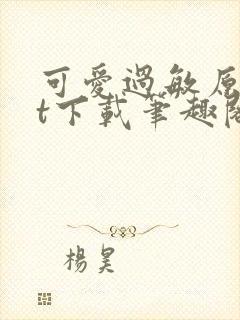 可愛過敏原
t下載筆趣閣
楊昊